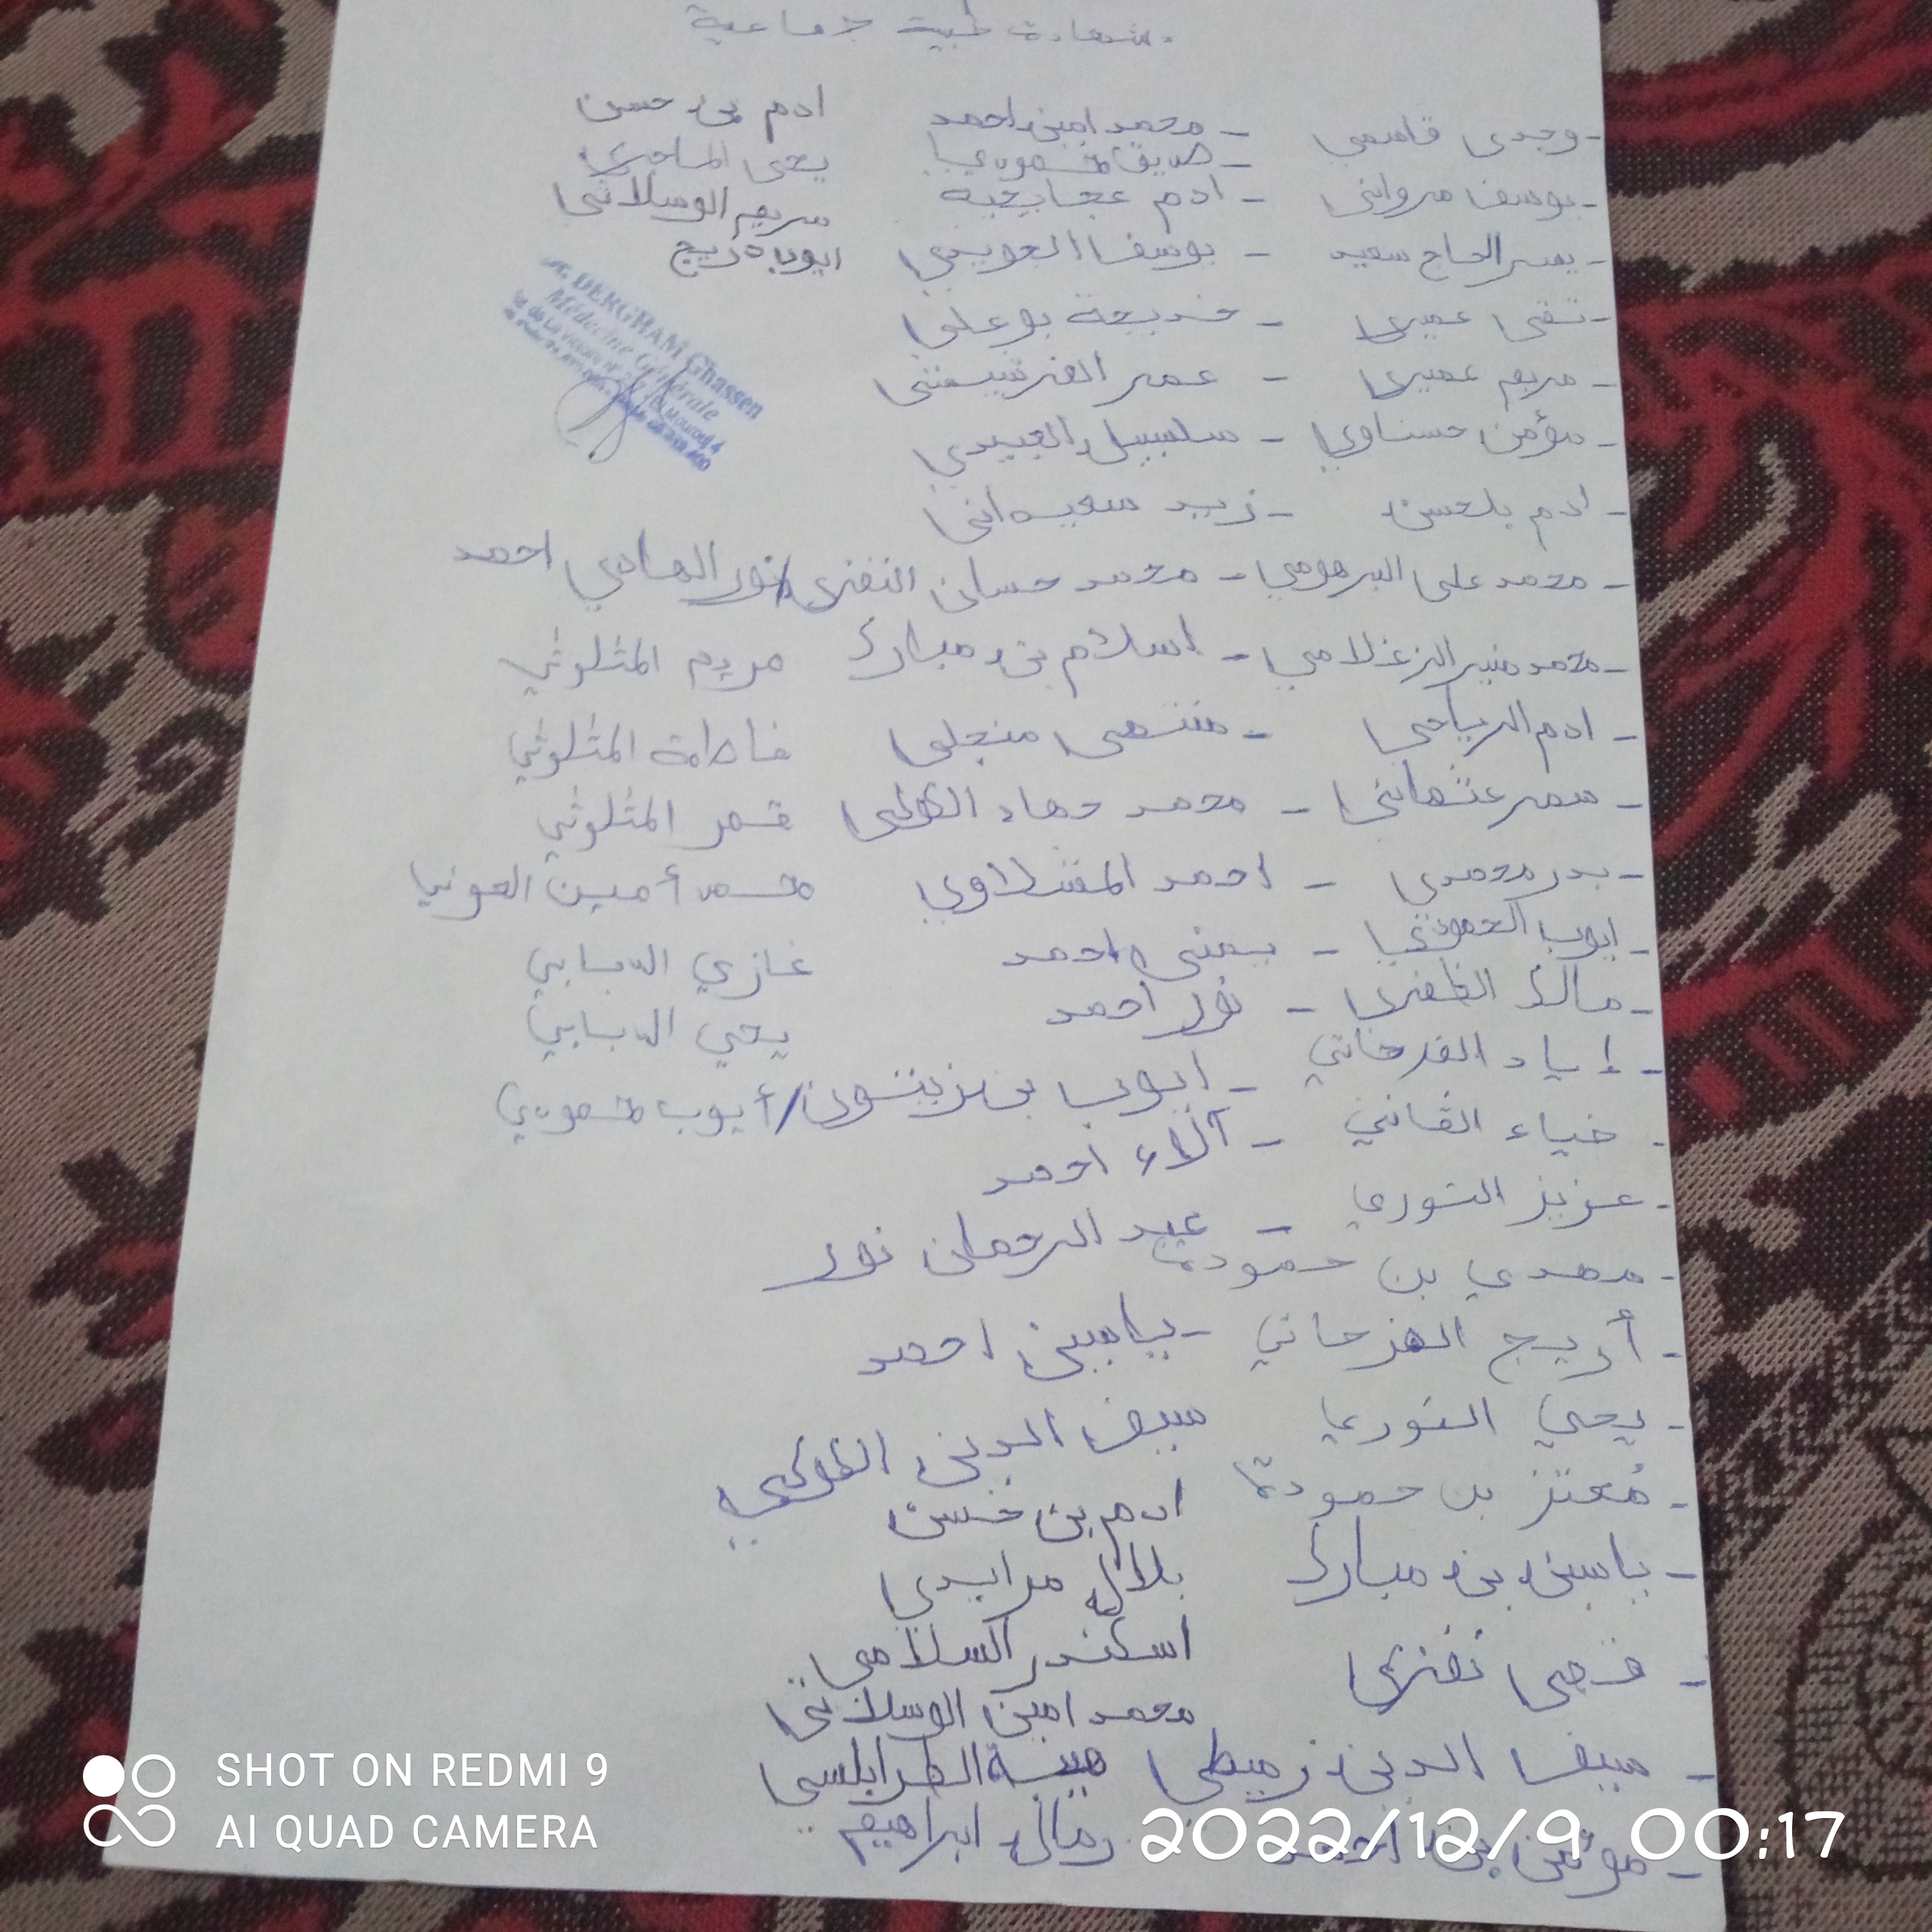 شهادة طبية جماعية
- وجدي قاسمي - محمد امين احمد ادم بن حسن
- صديق يحي الماجري
- يوسف مرواني - ادم عجايبية مريم الوسلاتي
- يسر الحاج سعيد - يوسف العويني ايوب دريج
DERGHAM Ghassen
Médecine Générale
- تقى عميري - خديجة بوعلي
- مريم عميري - عمر الفرشيشي
- مؤمن حسناوي - سلسبيل العبيدي
- ادم بلحسن - زيد سعيداني
- محمد علي البرهومي - محمد حسان النفزي / نور الهادي احمد
- محمد منير الزغلامي - اسلام بن مبارك مريم المثلوثي
- ادم الرياحي - منتهى منجلي فاطمة المثلوثي
- سمر عثماني - محمد جهاد قمر المثلوثي
- بدر محمدي - احمد محمد أمين العوني
- ايوب - يمنى احمد غازي الدبابي
- مالك - نور احمد يحي الدبابي
- إياد الفرحاني - ايوب بن زيتون / أيوب
- ضياء - آلاء احمد
- عزيز النوري - عبد الرحمان نور
- مهدي بن حمودة
- أريج الفرحاني - ياسين احمد
- يحي النوري سيف الدين
- مُعتز بن حمودة ادم بن حسن
- ياسين بن مبارك بلال مرايدي
اسكندر السلامي
- نفزي
محمد امين الوسلاتي
- سيف الدين زميطي الطرابلسي
- بن احمد ابراهيم
SHOT ON REDMI 9
AI QUAD CAMERA
2022/12/9 00:17